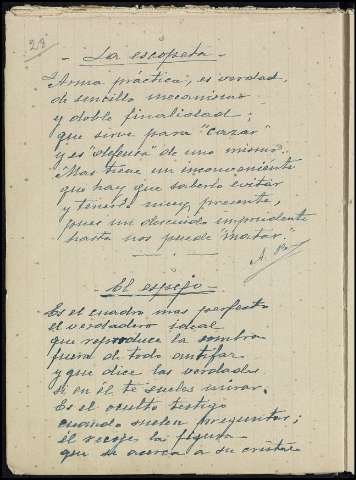 28
- La escopeta -
Arma práctica, es verdad,
de sencillo mecanismo
y doble finalidad;
que sirve para "cazar"
y es "defensa" de uno mismo.
Mas tiene un inconveniente
que hay que saberlo evitar
y tenerlo muy presente,
pues un descuido imprudente
hasta nos puede "matar."
A.
- El espejo -
Es el cuadro mas perfecto
el verdadero ideal
que reproduce la sombra
fuera de todo antifaz
y que dice las verdades
si en él te sueles mirar.
Es el oculto testigo
cuando suelen preguntar;
él recoje la figura
que se acerca a su cristal